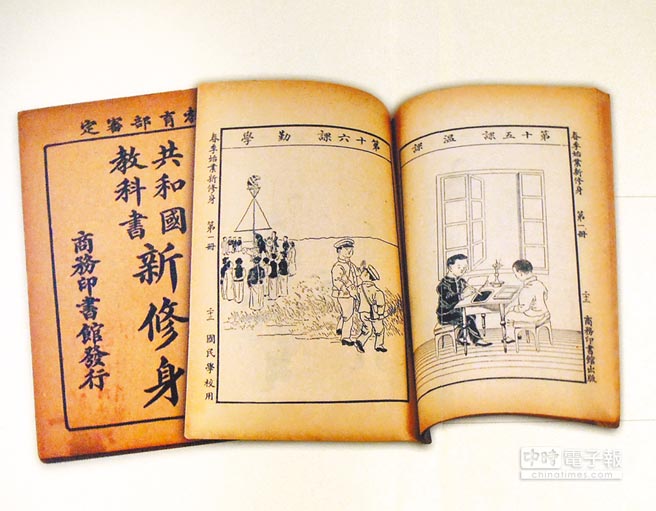 教育部審定
共和國
教科書
新修身
商務印書館發行
第十六課 勤學
春季始業新修身 第一冊
國民學校用
第十五課 溫課
春季始業新修身 第一冊
商務印書館出版
中時電子報
www.chinatimes.com